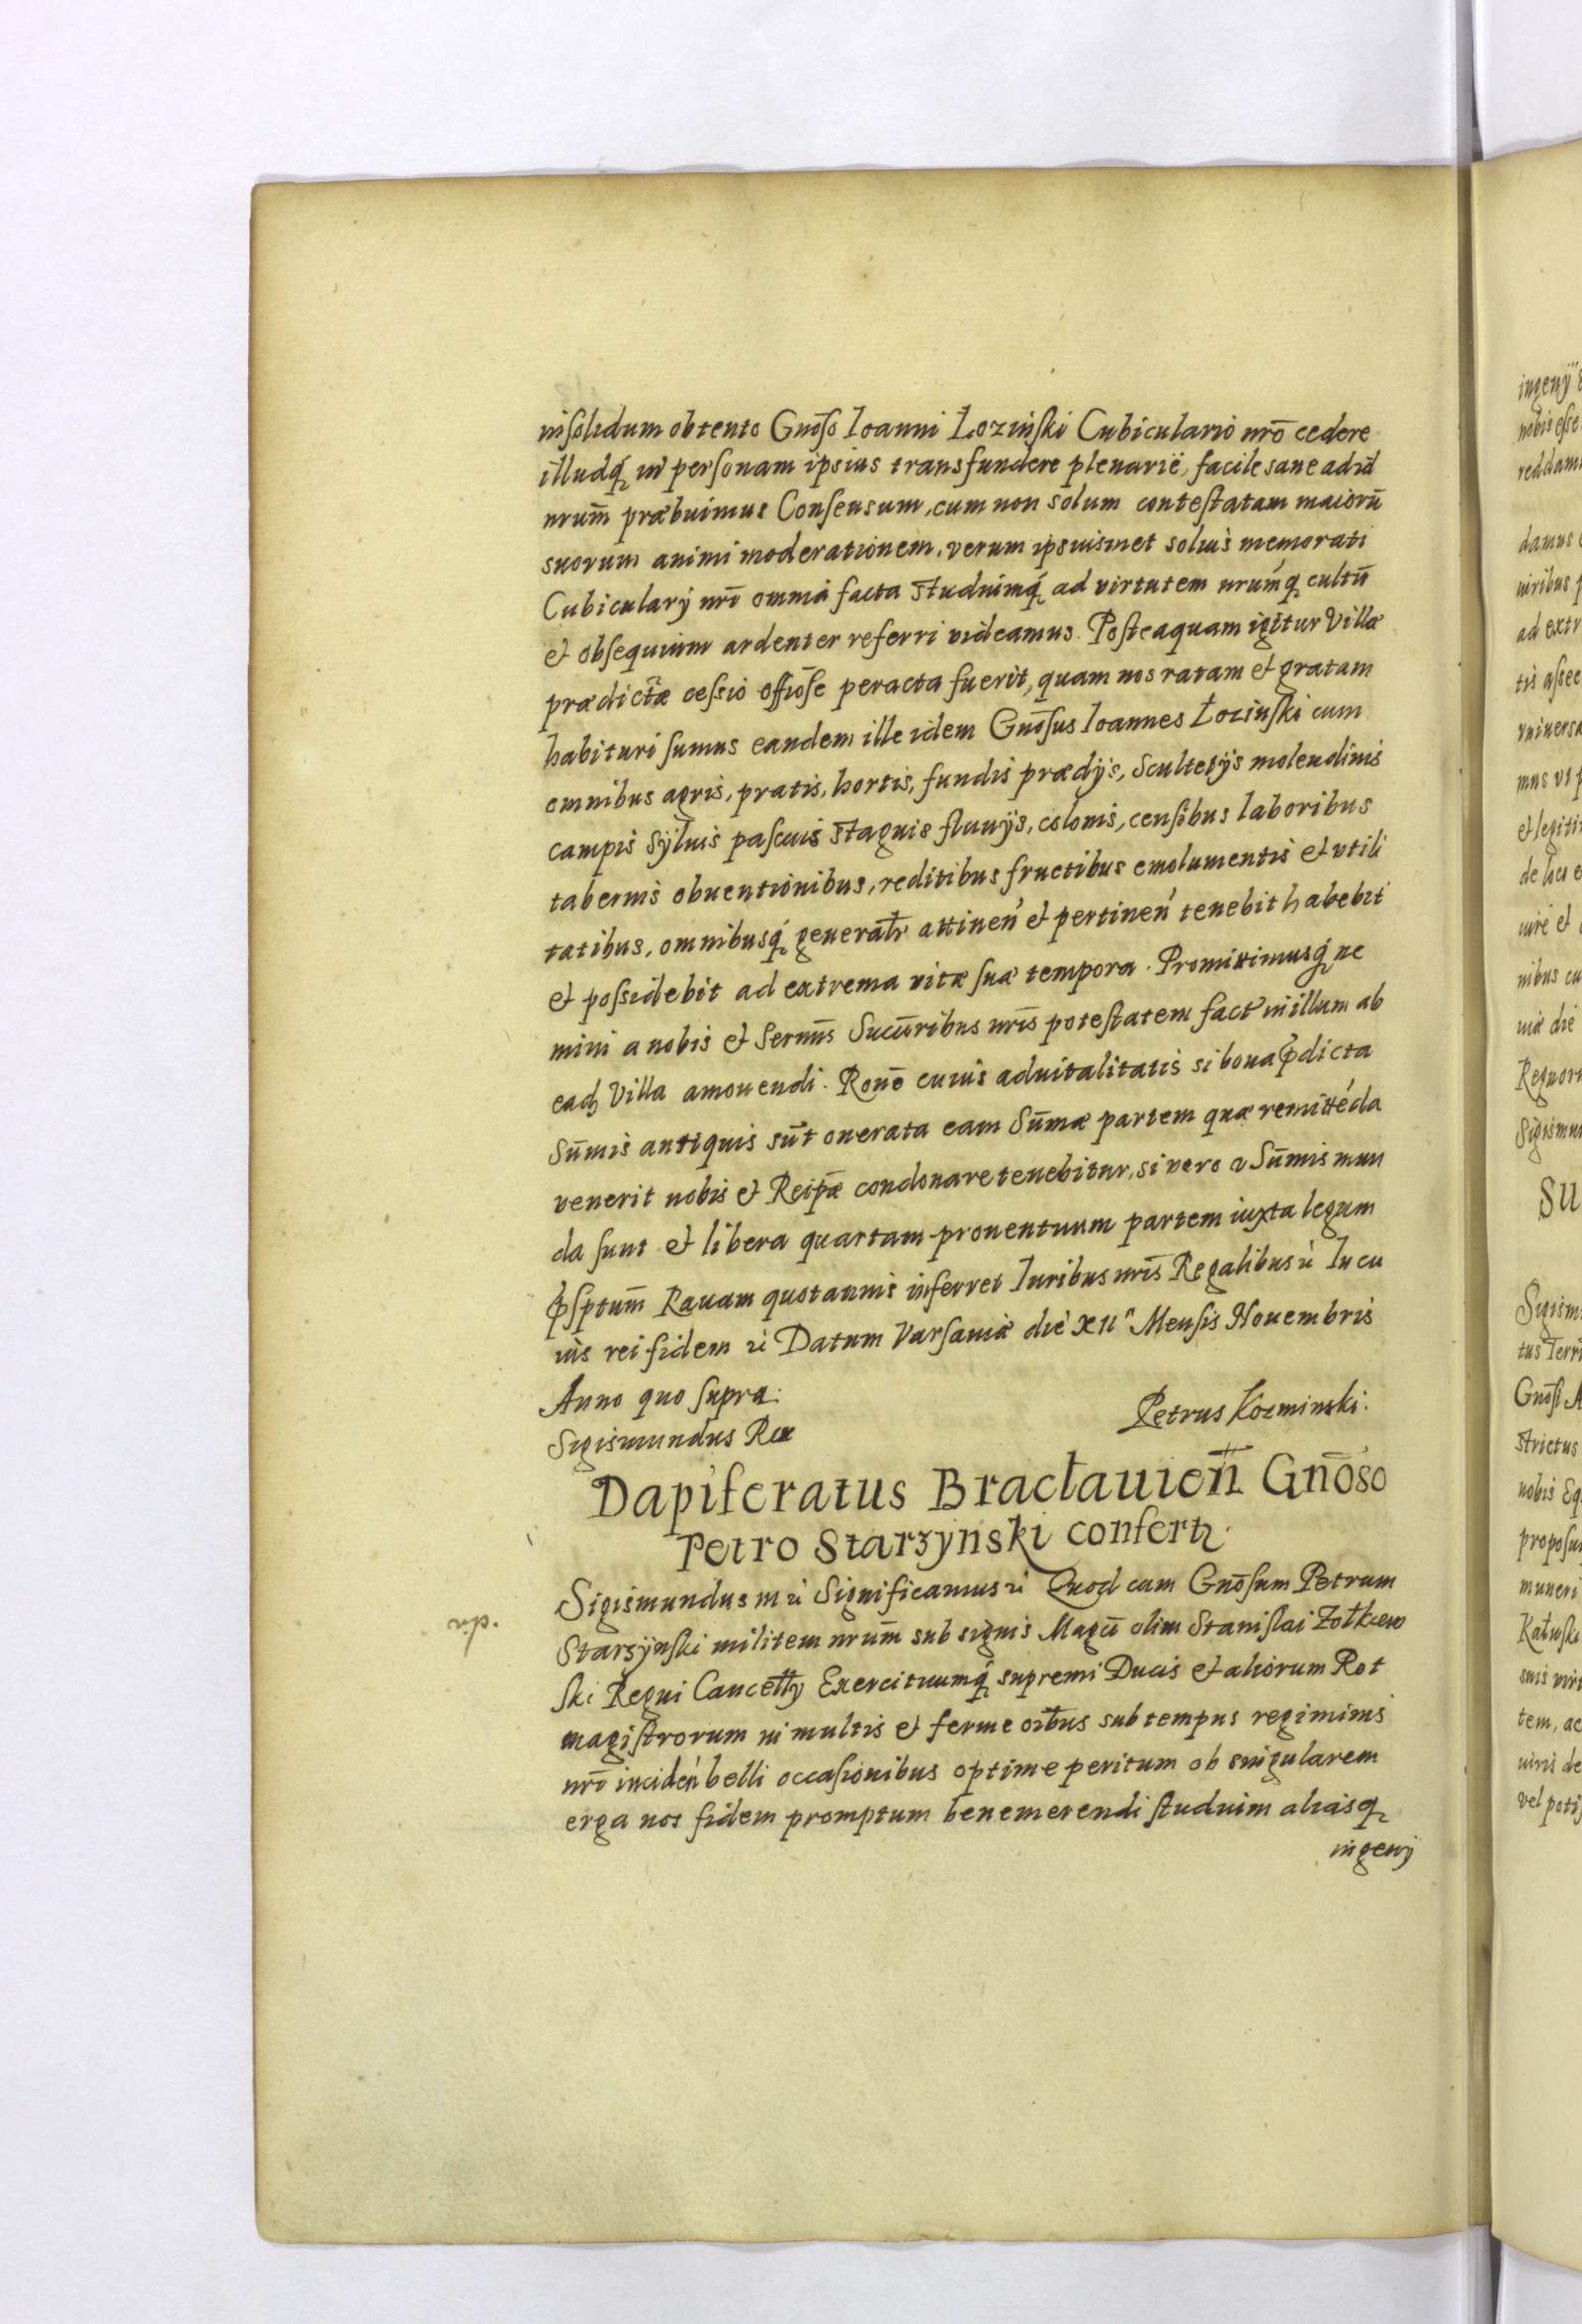 insolidum obtento Gnōso Ioanni Łoziński Cubiculario nrō cedere
illudq́ in personam ipsius transfundere plenarië, facile sane ad id
nrum̄ præbuimus Consensum, cum non solum contestatam maiorū
suorum animi moderationem, verum ipsiusmet solius memorati
Cubicularÿ nrī omnia facta studiumq́ ad virtutem nrumq́ cultū
et obsequium ardenter referri videamus. Posteaquam igitur Villæ
prædictæ cessio offiōse peracta fuerit, quam nos ratam et gratam
habituri sumus eandem ille idem Gnōsus Ioannes Łoziński cum
omnibus agris, pratis, hortis, fundis prædÿs, Scultetÿs molendinis
campis Sÿluis pascuis stagnis fluuÿs, colonis, censibus laboribus
tabernis obuentionibus, reditibus fructibus emolumentis et vtili
tatibus, omnibusq́ generalr̄ attinen̄ et pertinen̄ tenebit habebit
et possidebit ad extrema vitæ suæ tempora. Promittimusq́ ne
mini a nobis et Sernn̄s Succ̄ribus nrīs potestatem fact̄ in illum ab
eadꝫ Villa amouendi. Ronē cuius aduitalitatis si bona p̄dicta
Sum̄is antiquis sūt onerata eam Sum̄æ partem quæ remittēda
venerit nobis et Reipǣ condonare tenebitur, si vero a Sum̄is mun
da sunt et libera quartam prouentuum partem iuxta legum
p̄sptum̄ Rauam quotannis inferret Iuribus nrīs Regalibus ꝛc̄ In cu
ius rei fidem ꝛc̄ Datum Varsauiæ die XIIª Mensis Nouembris
Anno quo supra.
Sigismundus Rex
Petrus Kozminski.
Dapiferatus Bracłauien̄ Gnōso
Petro Starzÿnski confertꝛ.
dla.
Sigismundus III ꝛc̄ Significamus ꝛc̄ Quod cum Gnōsum Petrum
Starzÿnski militem nrum̄ sub signis Magcī olim Stanislai Zołkiew
ski Regni Cancellÿ Exercituumq́ supremi Ducis et aliorum Rot
magistrorum in multis et ferme oībus sub tempus regiminis
nrī inciden̄ belli occasionibus optime peritum ob singularem
erga nos fidem promptum benemerendi studium aliasq́
ingenÿ